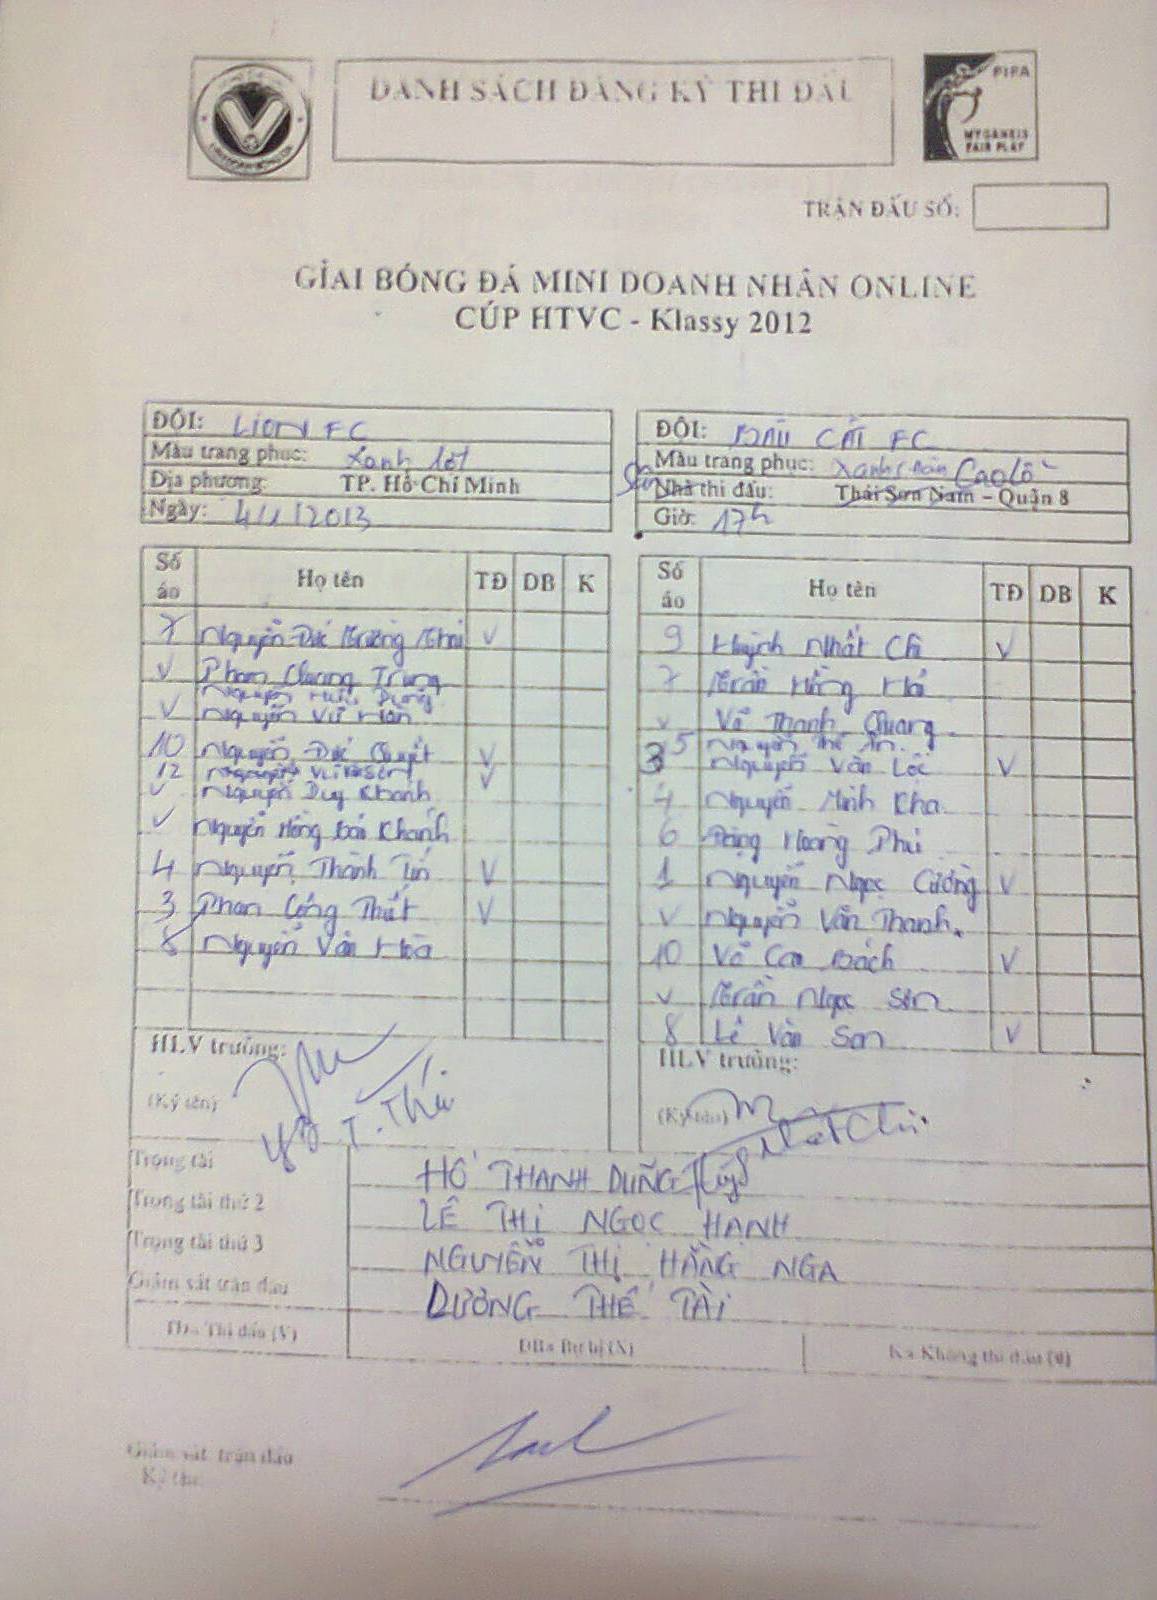 DANH SÁCH ĐĂNG KÝ THI ĐẤU
FIFA
MY GAME IS
FAIR PLAY
TRẬN ĐẤU SỐ:
GIẢI BÓNG ĐÁ MINI DOANH NHÂN ONLINE
CÚP HTVC - Klassy 2012
ĐỘI: LION FC
Màu trang phục: Xanh lợt
Địa phương: TP. Hồ Chí Minh
Ngày: 4/1/2013
ĐỘI: BÀU CÁT FC
Màu trang phục: Xanh
Sân Cao Lỗ
Nhà thi đấu: Thái Sơn Nam - Quận 8
Giờ: 17h
Số áo Họ tên TĐ DB K
7 Nguyễn Đức V
V Phan Quang Trung
Nguyễn Hữu Dương
V Nguyễn Vũ
10 Nguyễn Đức Quyết V
12 Nguyễn V
V Nguyễn Duy Khánh
V Nguyễn Hồng Khanh
4 Nguyễn Thành Tín V
3 Phan Công Thết V
8 Nguyễn Văn Hòa
HLV trưởng:
(Ký tên)
T. Thú
Số áo Họ tên TĐ DB K
9 Huỳnh Nhất Chi V
7 Trần Hồng
V Võ Thanh Quang
5 Nguyễn Thế Ân
3 Nguyễn Văn Lộc V
4 Nguyễn Minh Kha
6 Đặng Hoàng Phú
1 Nguyễn Ngọc Cường V
V Nguyễn Văn Thanh
10 Võ Cao Bách V
V Trần Ngọc Sơn
8 Lê Văn Sơn V
HLV trưởng:
(Ký tên)
Trọng tài HỒ THANH DŨNG
Trọng tài thứ 2 LÊ THỊ NGỌC HẠNH
Trọng tài thứ 3 NGUYỄN VÕ THỊ HẰNG NGA
Giám sát trận đấu DƯƠNG THẾ TÀI
TĐ= Thi đấu (V) DB= Dự bị (X) K= Không thi đấu (0)
Giám sát trận đấu
Ký tên